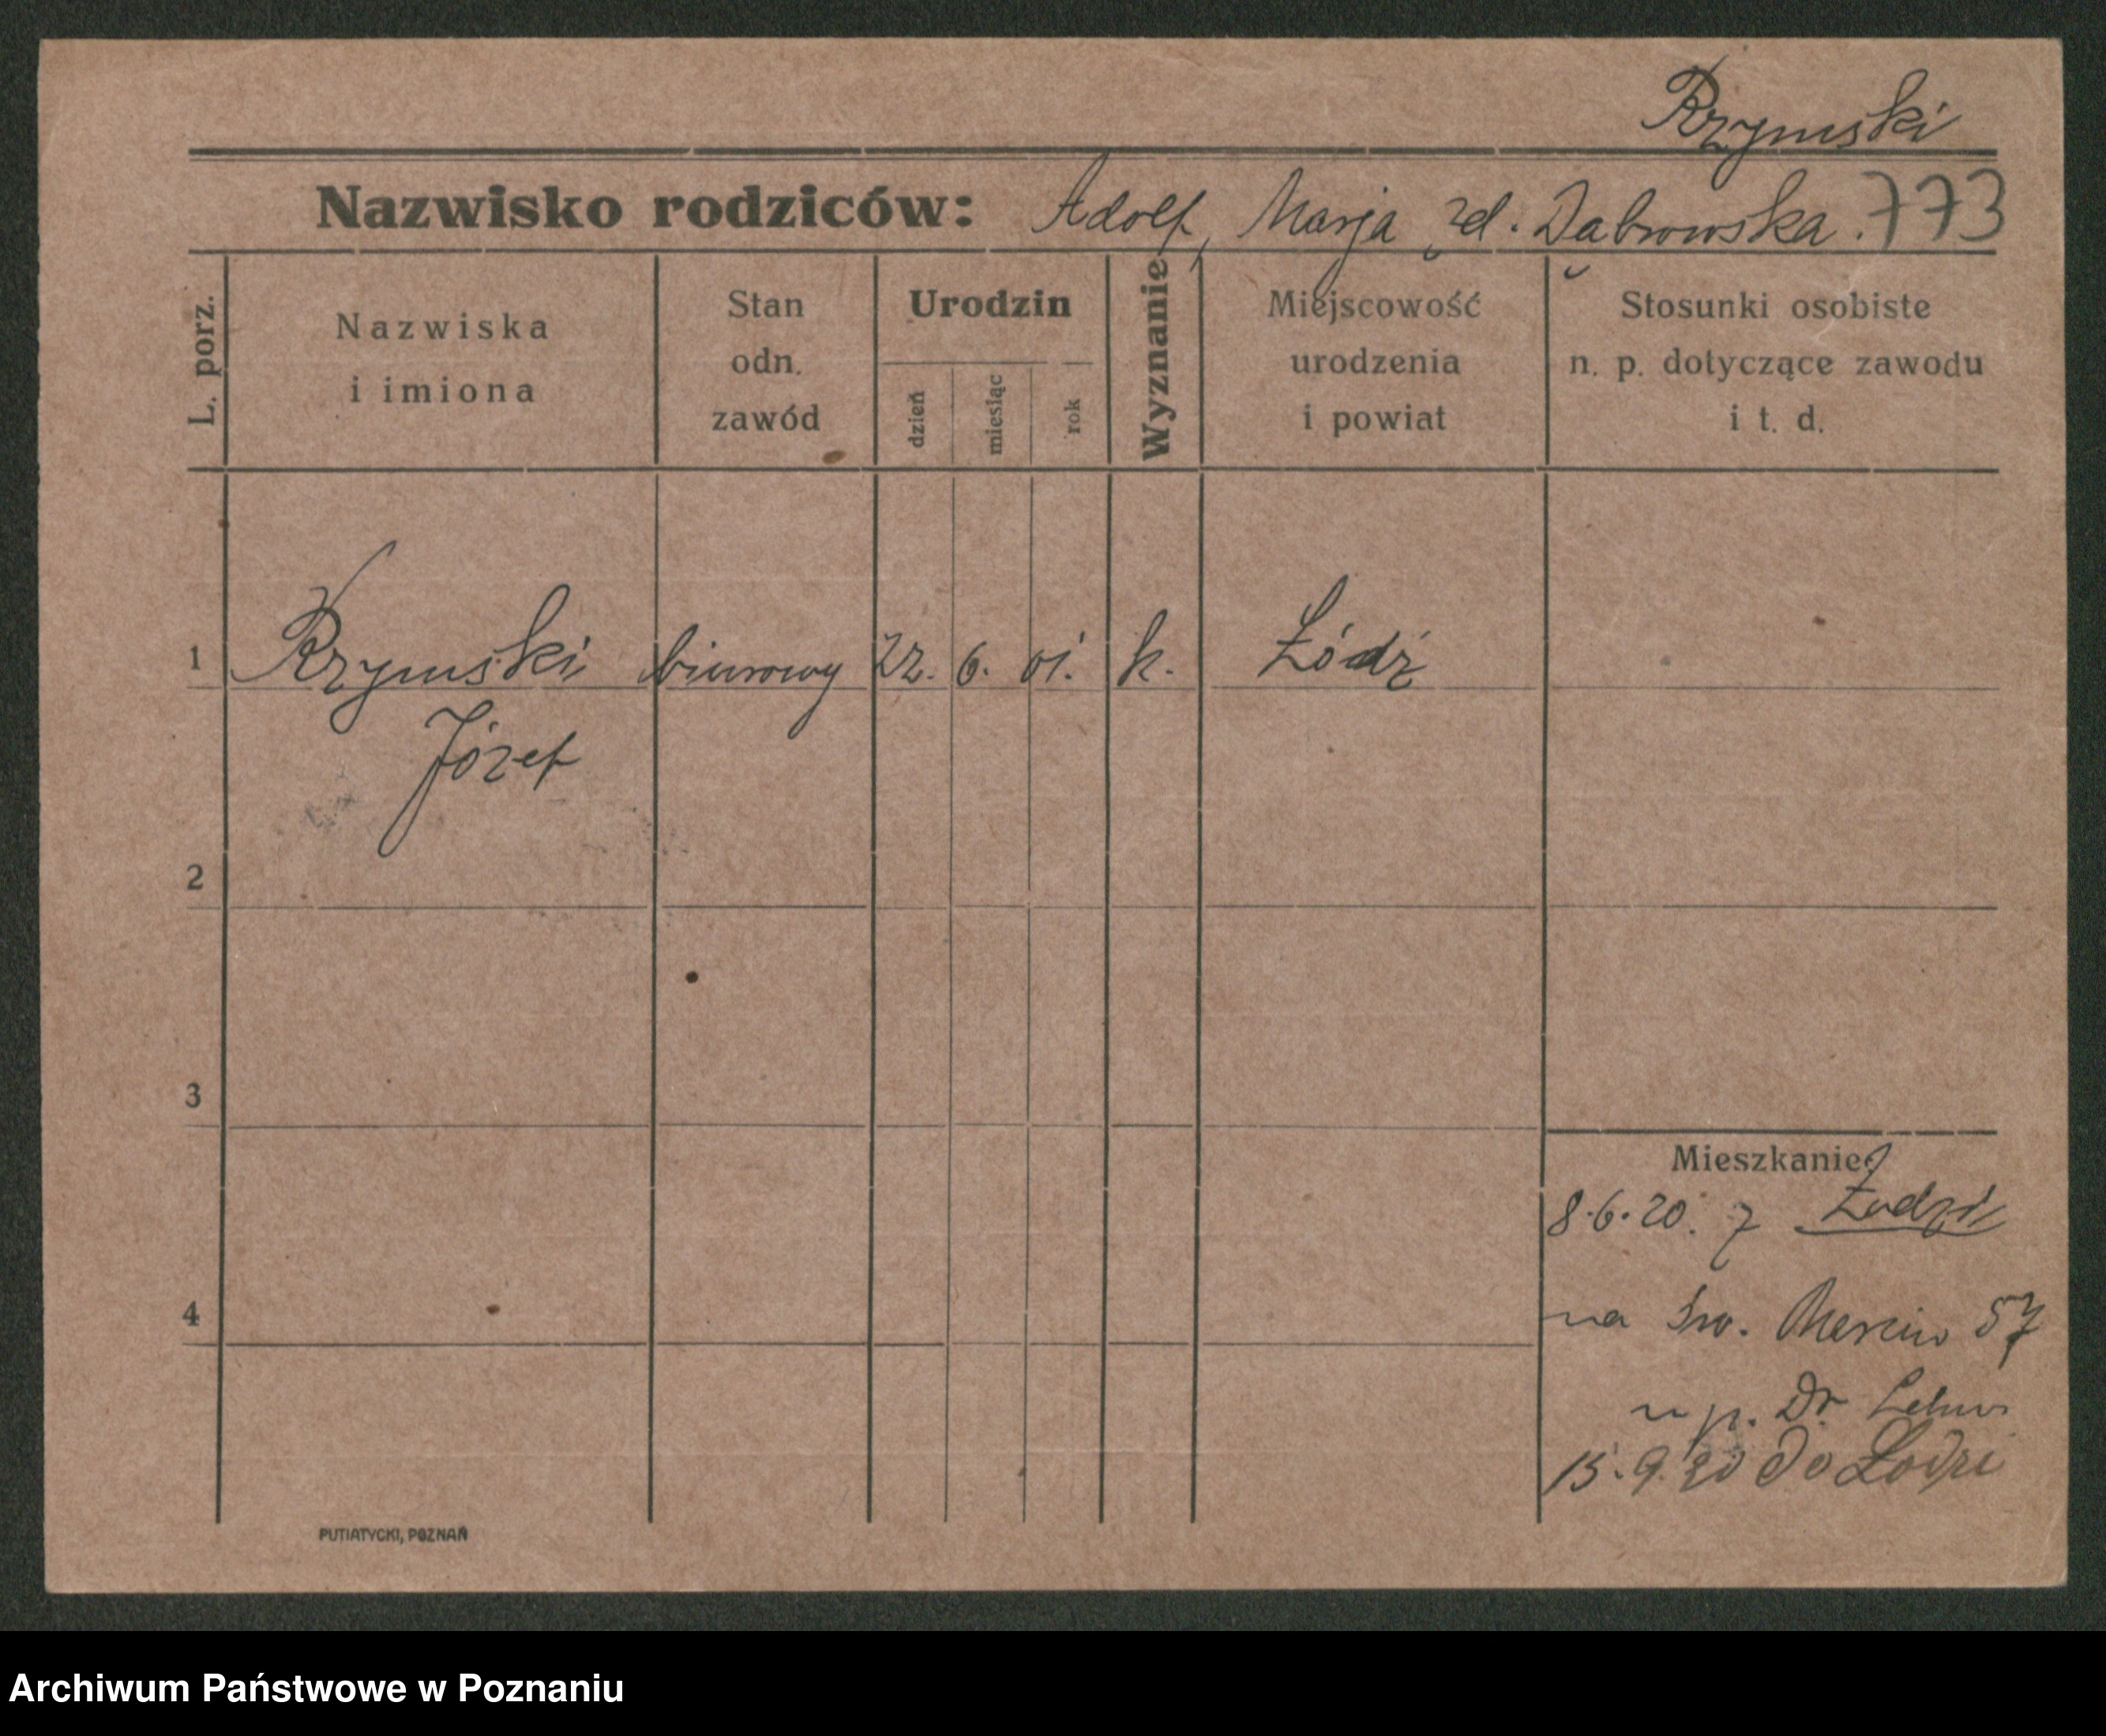 Rzymski
Nazwisko rodziców: Adolf, Marja zd. Dąbrowska. 773
L. porz.
Nazwiska
i imiona
Stan
odn.
zawód
Urodzin
dzień
miesiąc
rok
Wyznanie
Miejscowość
urodzenia
i powiat
Stosunki osobiste
n. p. dotyczące zawodu
i t. d.
1 Rzymski biurowy 22. 6. 01. k. Łódź
Józef
2
3
4
Mieszkanie
8.6.20. z Łodzi
na św. Marcin 57
u p. Dr.
15.9.20 do Łodzi
PUTIATYCKI, POZNAŃ
Archiwum Państwowe w Poznaniu